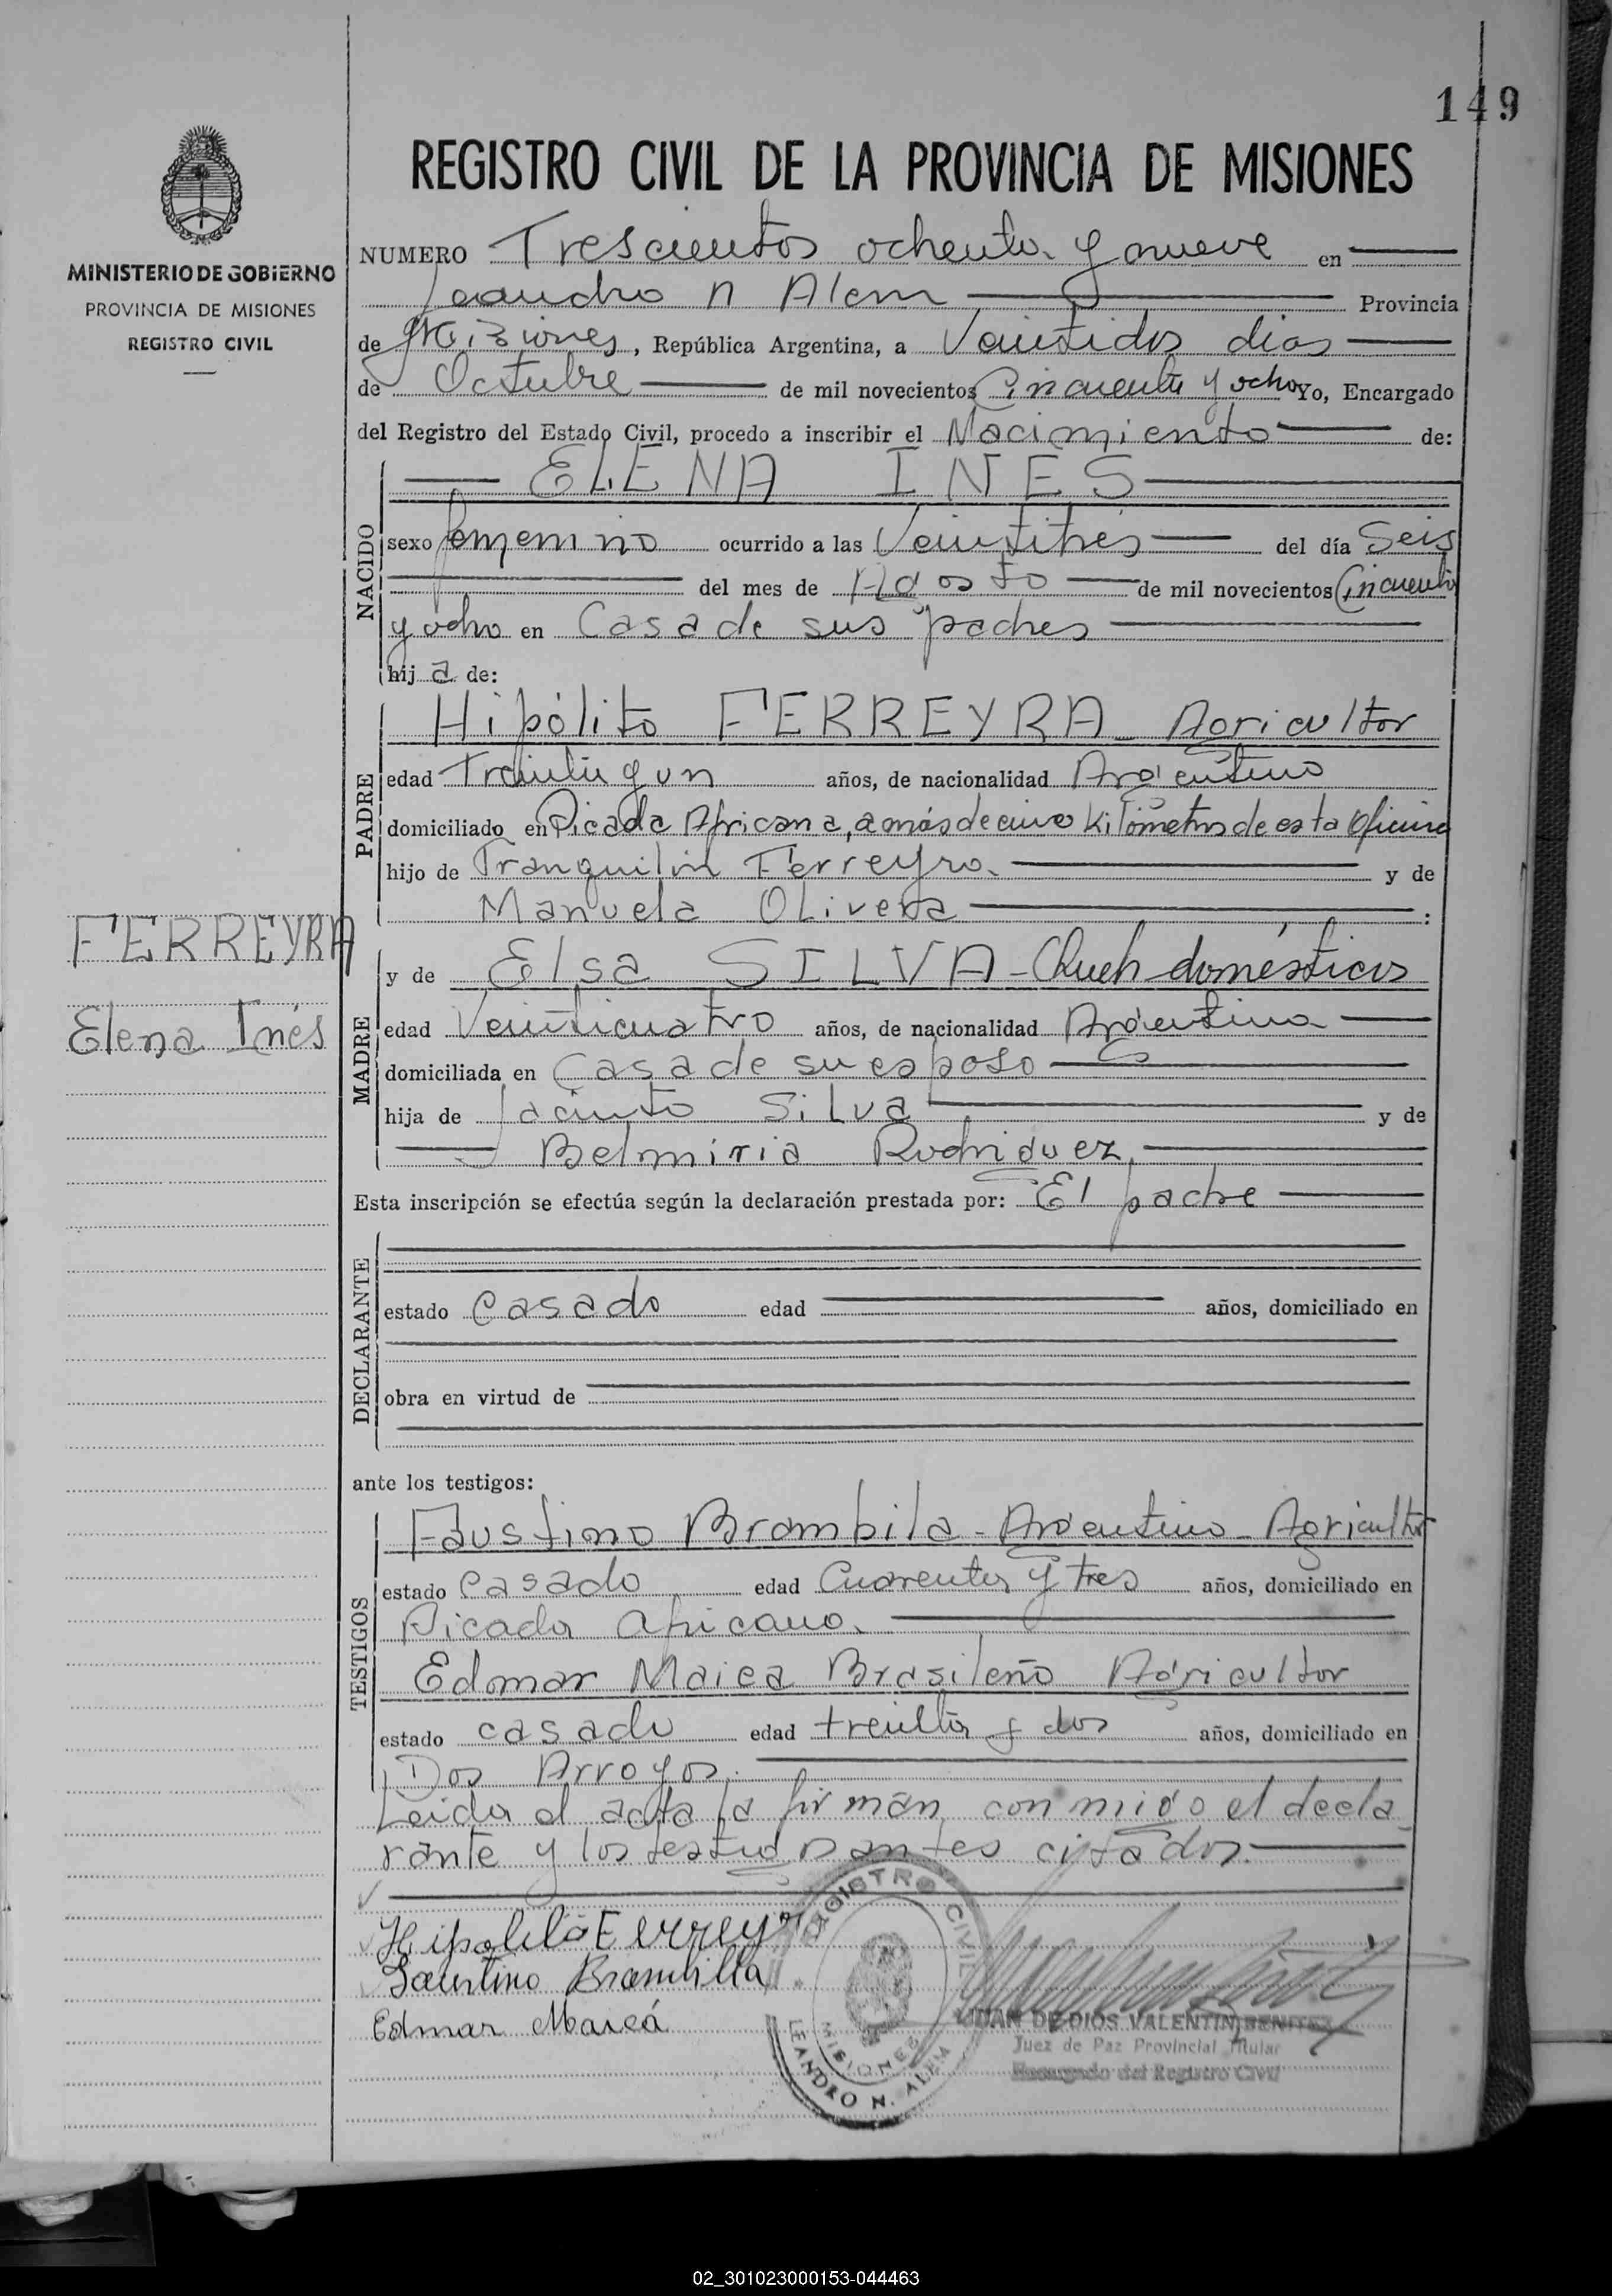 149
REGISTRO CIVIL DE LA PROVINCIA DE MISIONES
MINISTERIO DE GOBIERNO
PROVINCIA DE MISIONES
REGISTRO CIVIL
NUMERO Trescientos ochenta y nueve en
Leandro N Alem Provincia
de Misiones, República Argentina, a Veintidos dias
de Octubre de mil novecientos Cincuenta y ocho Yo, Encargado
del Registro del Estado Civil, procedo a inscribir el Nacimiento de:
NACIDO
ELENA INES
sexo femenino ocurrido a las Veintitrés del día Seis
del mes de Agosto de mil novecientos Cincuenta
y ocho en Casa de sus padres
hija de:
PADRE
Hipólito FERREYRA - Agricultor
edad Treinta y un años, de nacionalidad Argentino
domiciliado en Picada Africana, a más de cinco Kilómetros de esta Oficina
hijo de Tranquilin Ferreyra y de
Manuela Olivera :
FERREYRA
Elena Inés
MADRE
y de Elsa SILVA - Queh. domésticos
edad Veinticuatro años, de nacionalidad Argentina
domiciliada en Casa de su esposo
hija de Jacinto Silva y de
Belmiria Rodriguez,
Esta inscripción se efectúa según la declaración prestada por: El padre
DECLARANTE
estado Casado edad años, domiciliado en
obra en virtud de
ante los testigos:
TESTIGOS
Faustino Brambila - Argentino - Agricultor
estado Casado edad Cuarenta y tres años, domiciliado en
Picada Africana.
Edmar Maica Brasileño Agricultor
estado casado edad treinta y dos años, domiciliado en
Dos Arroyos.
Leida el acta la firman conmigo el decla
rante y los testigos antes citados.
Hipolito Ferreyra
Faustino Brambilla
Edmar Maicá
REGISTRO CIVIL
MISIONES
LEANDRO N. ALEM
JUAN DE DIOS VALENTIN BENITEZ
Juez de Paz Provincial Titular
Encargado del Registro Civil
02_301023000153-044463